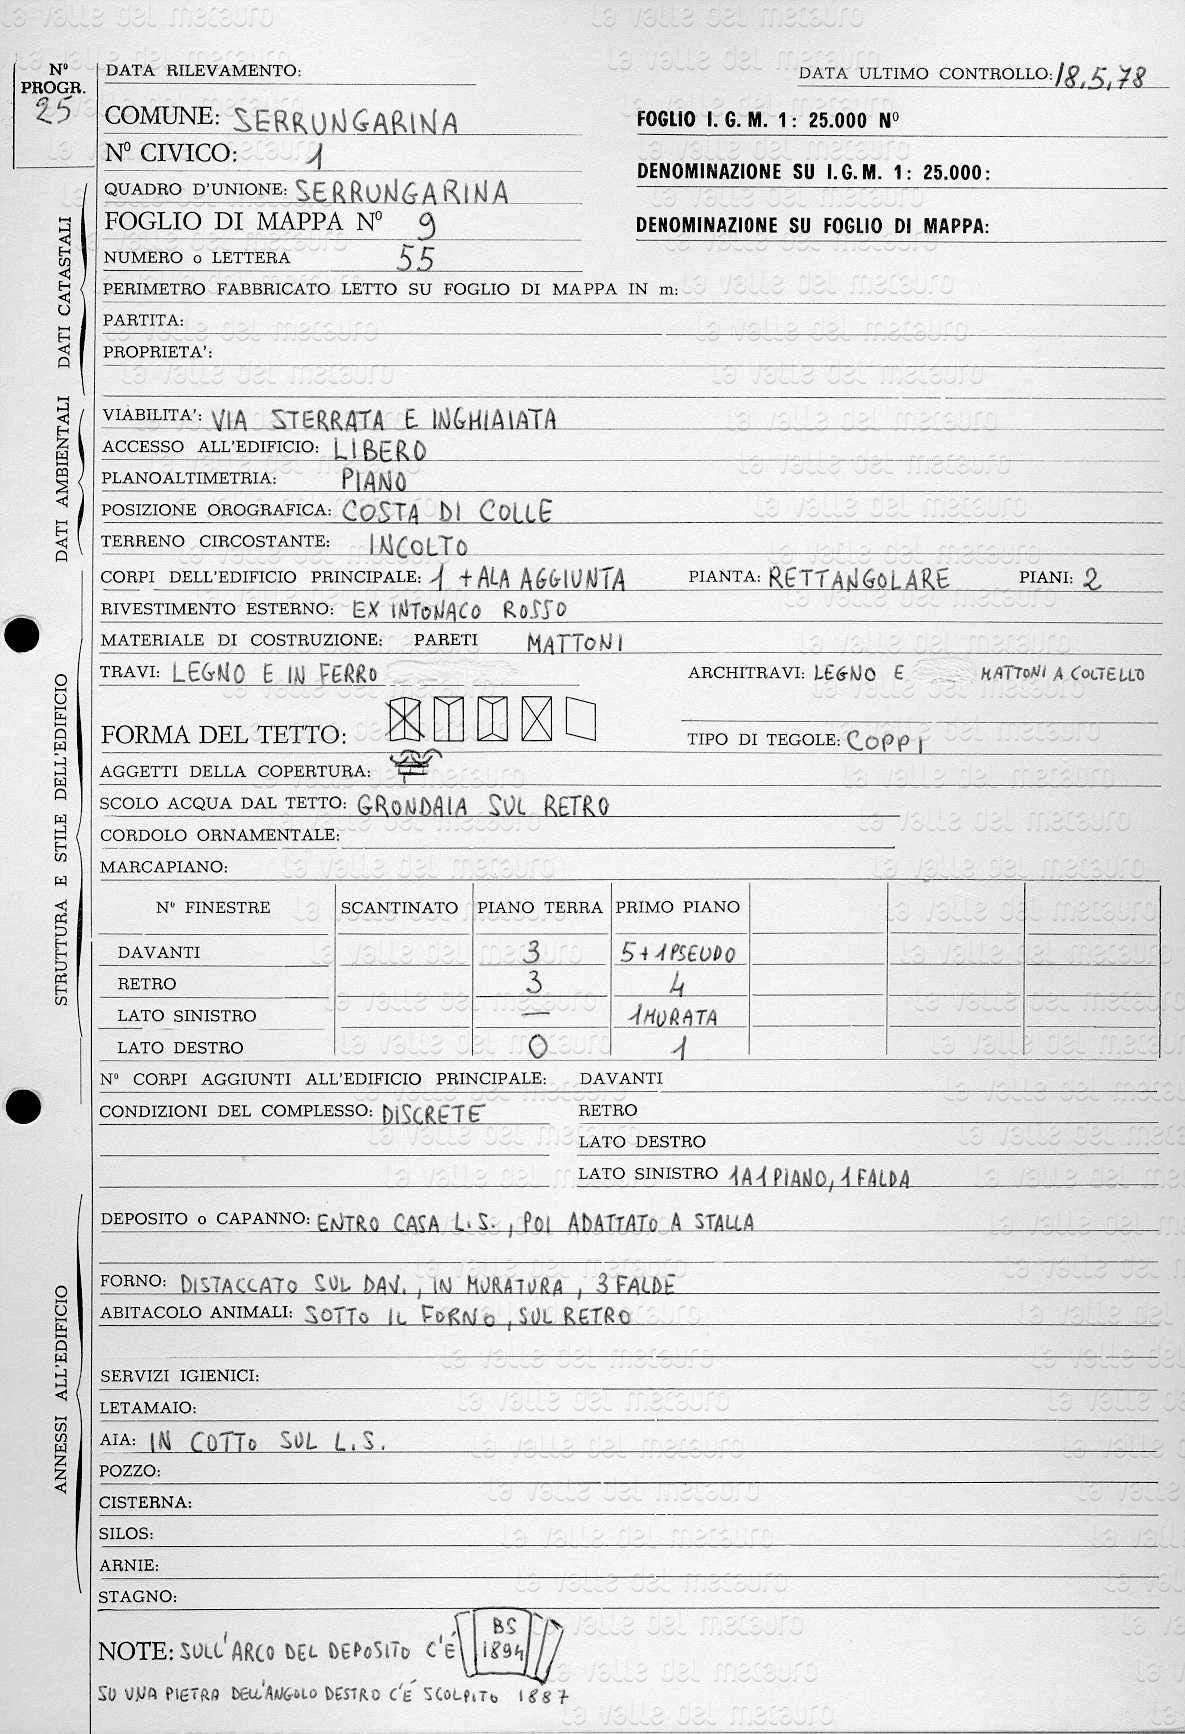 Nº PROGR. 25
DATA RILEVAMENTO:
DATA ULTIMO CONTROLLO: 18.5.78
COMUNE: SERRUNGARINA
FOGLIO I. G. M. 1: 25.000 Nº
Nº CIVICO: 1
DENOMINAZIONE SU I.G.M. 1: 25.000:
DATI CATASTALI
QUADRO D'UNIONE: SERRUNGARINA
FOGLIO DI MAPPA Nº 9
DENOMINAZIONE SU FOGLIO DI MAPPA:
NUMERO o LETTERA 55
PERIMETRO FABBRICATO LETTO SU FOGLIO DI MAPPA IN m:
PARTITA:
PROPRIETA':
DATI AMBIENTALI
VIABILITA': VIA STERRATA E INGHIAIATA
ACCESSO ALL'EDIFICIO: LIBERO
PLANOALTIMETRIA: PIANO
POSIZIONE OROGRAFICA: COSTA DI COLLE
TERRENO CIRCOSTANTE: INCOLTO
STRUTTURA E STILE DELL'EDIFICIO
CORPI DELL'EDIFICIO PRINCIPALE: 1 + ALA AGGIUNTA PIANTA: RETTANGOLARE PIANI: 2
RIVESTIMENTO ESTERNO: EX INTONACO ROSSO
MATERIALE DI COSTRUZIONE: PARETI MATTONI
TRAVI: LEGNO E IN FERRO ARCHITRAVI: LEGNO E MATTONI A COLTELLO
FORMA DEL TETTO: TIPO DI TEGOLE: COPPI
AGGETTI DELLA COPERTURA:
SCOLO ACQUA DAL TETTO: GRONDAIA SUL RETRO
CORDOLO ORNAMENTALE:
MARCAPIANO:
Nº FINESTRE SCANTINATO PIANO TERRA PRIMO PIANO
DAVANTI 3 5+1PSEUDO
RETRO 3 4
LATO SINISTRO — 1MURATA
LATO DESTRO 0 1
Nº CORPI AGGIUNTI ALL'EDIFICIO PRINCIPALE: DAVANTI
CONDIZIONI DEL COMPLESSO: DISCRETE RETRO
LATO DESTRO
LATO SINISTRO 1A1PIANO, 1FALDA
ANNESSI ALL'EDIFICIO
DEPOSITO o CAPANNO: ENTRO CASA L.S., POI ADATTATO A STALLA
FORNO: DISTACCATO SUL DAV., IN MURATURA, 3 FALDE
ABITACOLO ANIMALI: SOTTO IL FORNO, SUL RETRO
SERVIZI IGIENICI:
LETAMAIO:
AIA: IN COTTO SUL L.S.
POZZO:
CISTERNA:
SILOS:
ARNIE:
STAGNO:
NOTE: SULL'ARCO DEL DEPOSITO C'É BS 1894
SU UNA PIETRA DELL'ANGOLO DESTRO C'É SCOLPITO 1887
la valle del metauro